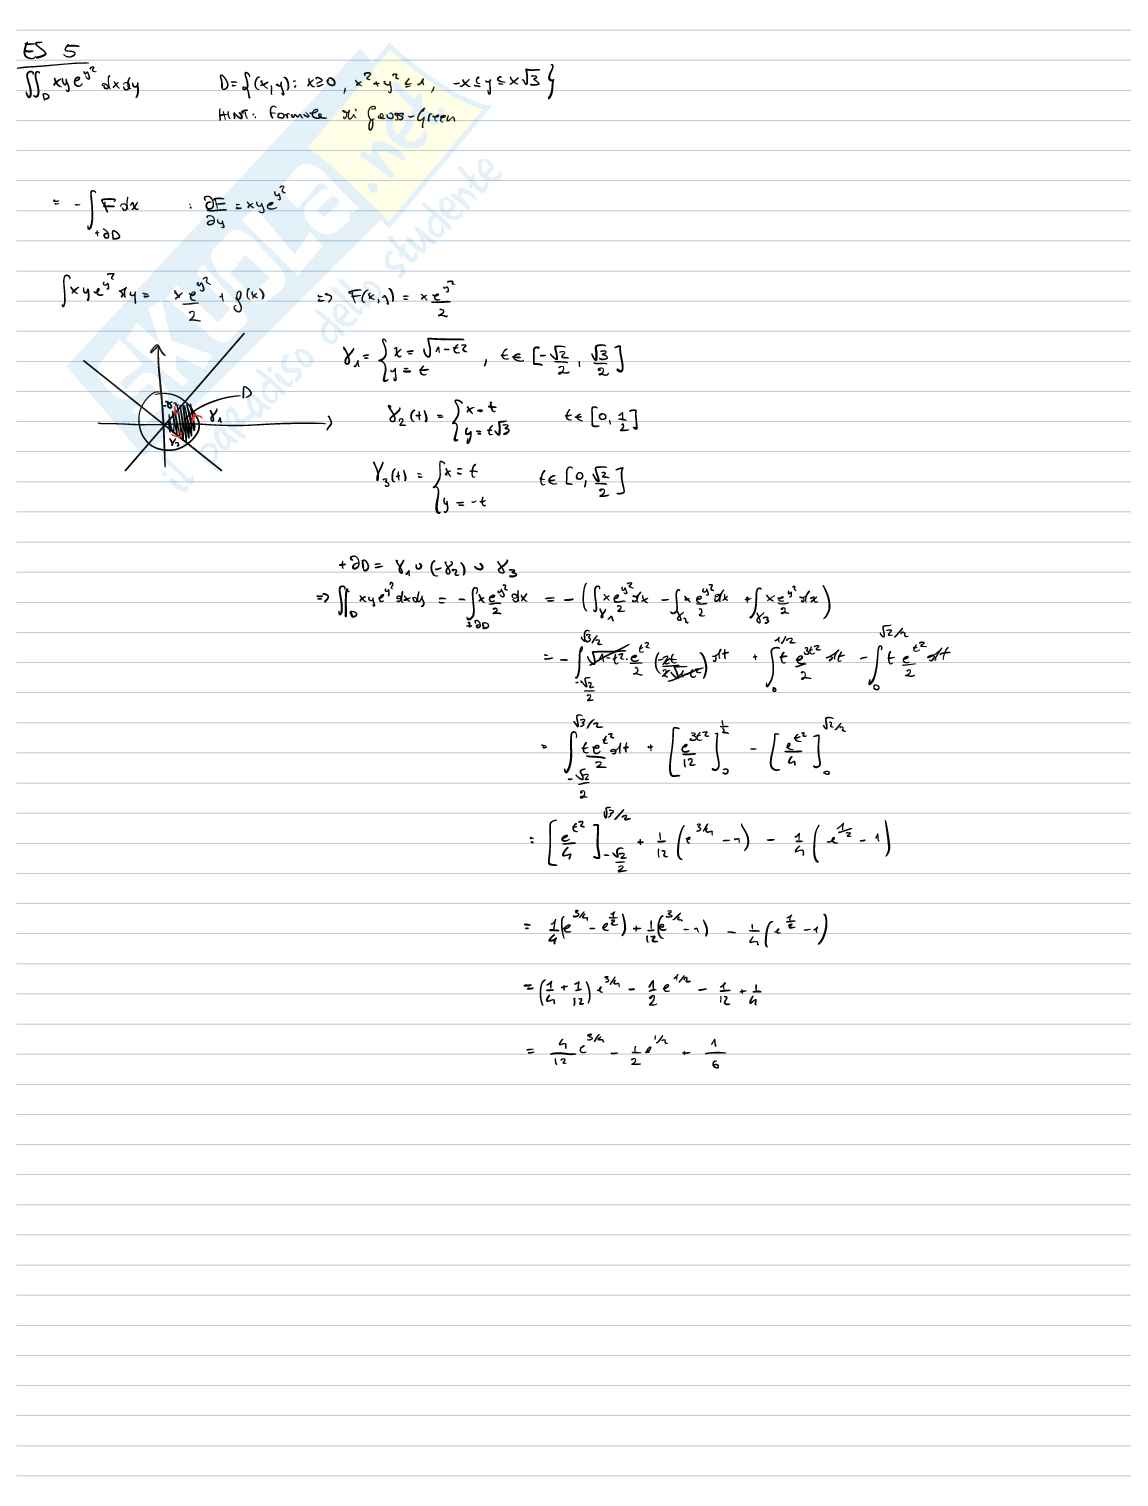 ES 5
∬_D xy e^{y²} dxdy    D = {(x,y): x≥0, x²+y² ≤ 1, -x ≤ y ≤ x√3}
HINT: Formule di Gauss-Green
= -∫_{+∂D} F dx    : ∂F/∂y = xy e^{y²}
∫ xy e^{y²} dy = x e^{y²}/2 + g(x)    => F(x,y) = x e^{y²}/2
γ₁ = { x = √(1-t²), y = t    , t ∈ [-√2/2, √3/2]
D
-γ₂    γ₁
γ₃
γ₂(t) = { x = t, y = t√3    t ∈ [0, 1/2]
γ₃(t) = { x = t, y = -t    t ∈ [0, √2/2]
+∂D = γ₁ ∪ (-γ₂) ∪ γ₃
=> ∬_D xy e^{y²} dxdy = -∫_{+∂D} x e^{y²}/2 dx = -(∫_{γ₁} x e^{y²}/2 dx - ∫_{γ₂} x e^{y²}/2 dx + ∫_{γ₃} x e^{y²}/2 dx)
= -∫_{-√2/2}^{√3/2} √(1-t²) · e^{t²}/2 (-2t/2√(1-t²)) dt + ∫_0^{1/2} t e^{3t²}/2 dt - ∫_0^{√2/2} t e^{t²}/2 dt
= ∫_{-√2/2}^{√3/2} t e^{t²}/2 dt + [e^{3t²}/12]_0^{1/2} - [e^{t²}/4]_0^{√2/2}
= [e^{t²}/4]_{-√2/2}^{√3/2} + 1/12 (e^{3/4} - 1) - 1/4 (e^{1/2} - 1)
= 1/4 (e^{3/4} - e^{1/2}) + 1/12 (e^{3/4} - 1) - 1/4 (e^{1/2} - 1)
= (1/4 + 1/12) e^{3/4} - 1/2 e^{1/2} - 1/12 + 1/4
= 4/12 e^{3/4} - 1/2 e^{1/2} + 1/6
SKUOLA.net
il paradiso dello studente